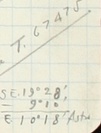 T. 67475
S.E. 19° 28'
= 9° 10'
E 10° 18'